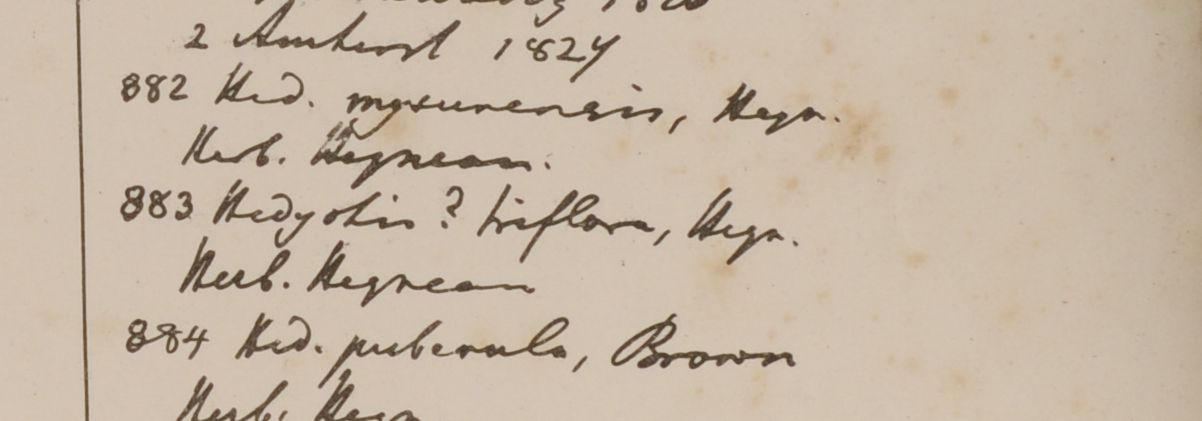 2 Amherst 1827
882 Hed. mysurensis, Heyn.
Herb. Heynean.
883 Hedyotis? triflora, Heyn.
Herb. Heynean
884 Hed. puberula, Brown
Herb. Heyn